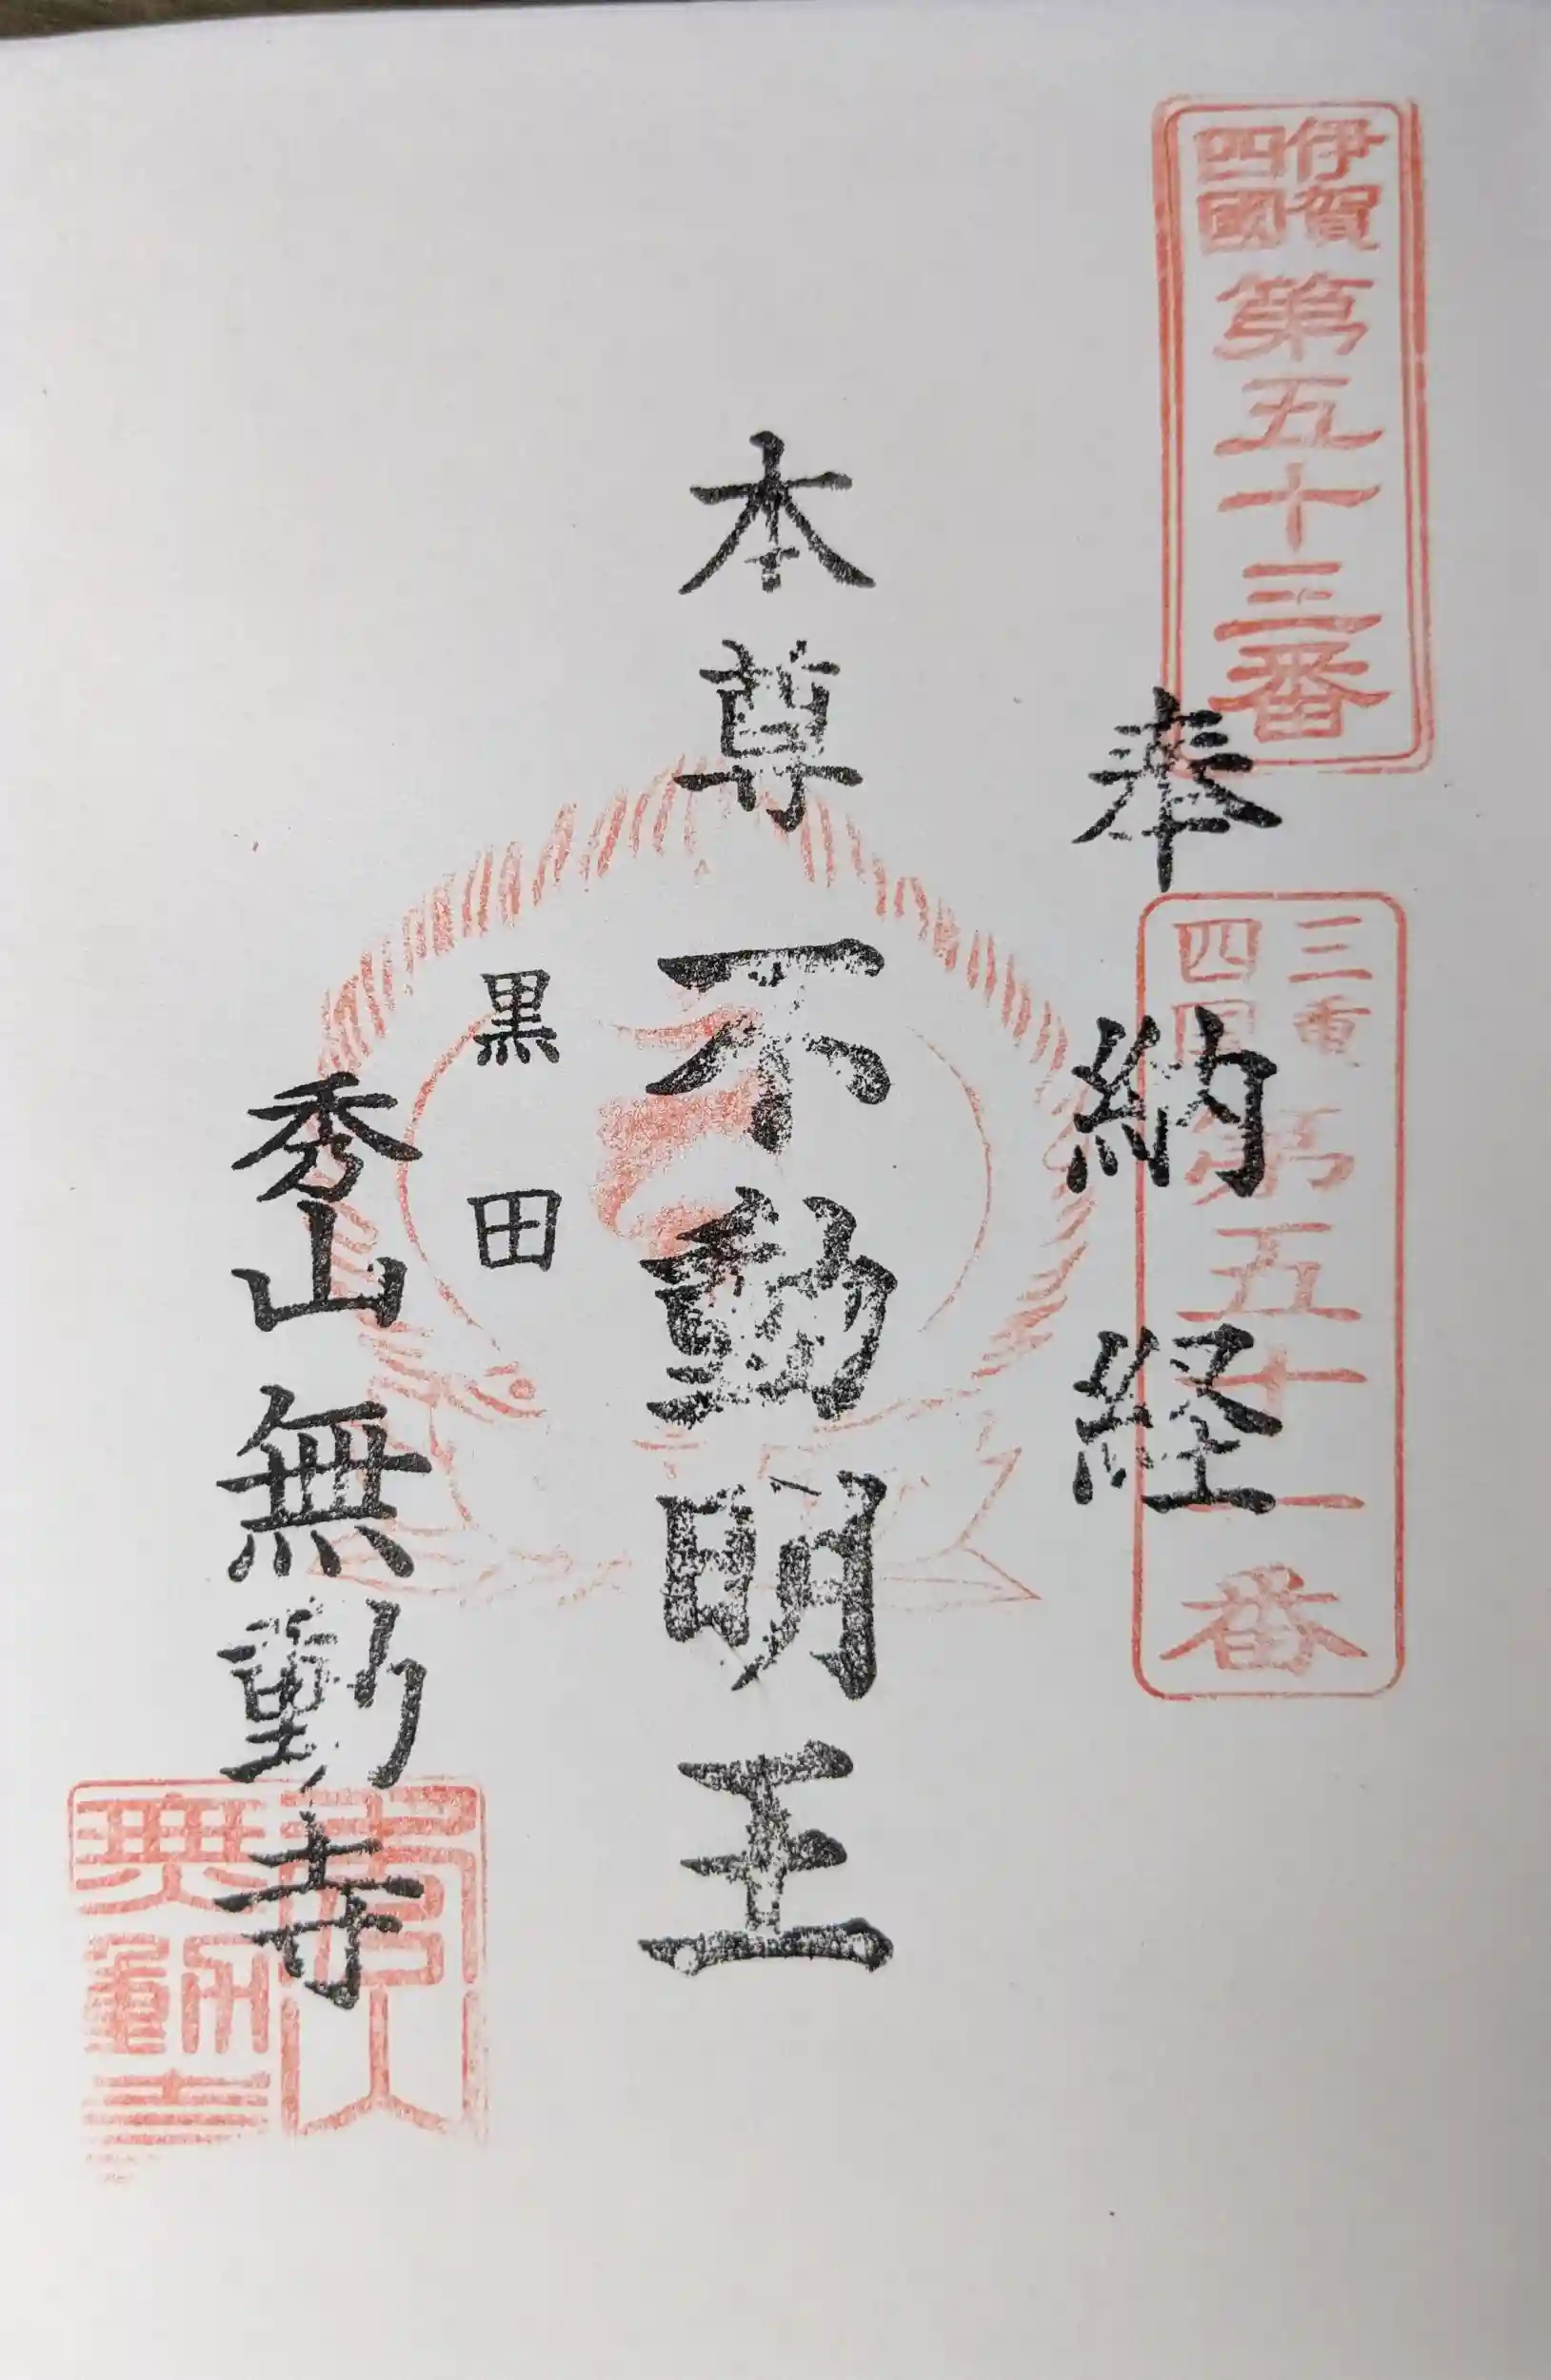 伊賀
四國
第五十三番
奉納経
三重
四国
第五十一番
本尊不動明王
黒田
秀山無動寺
秀山
無動寺